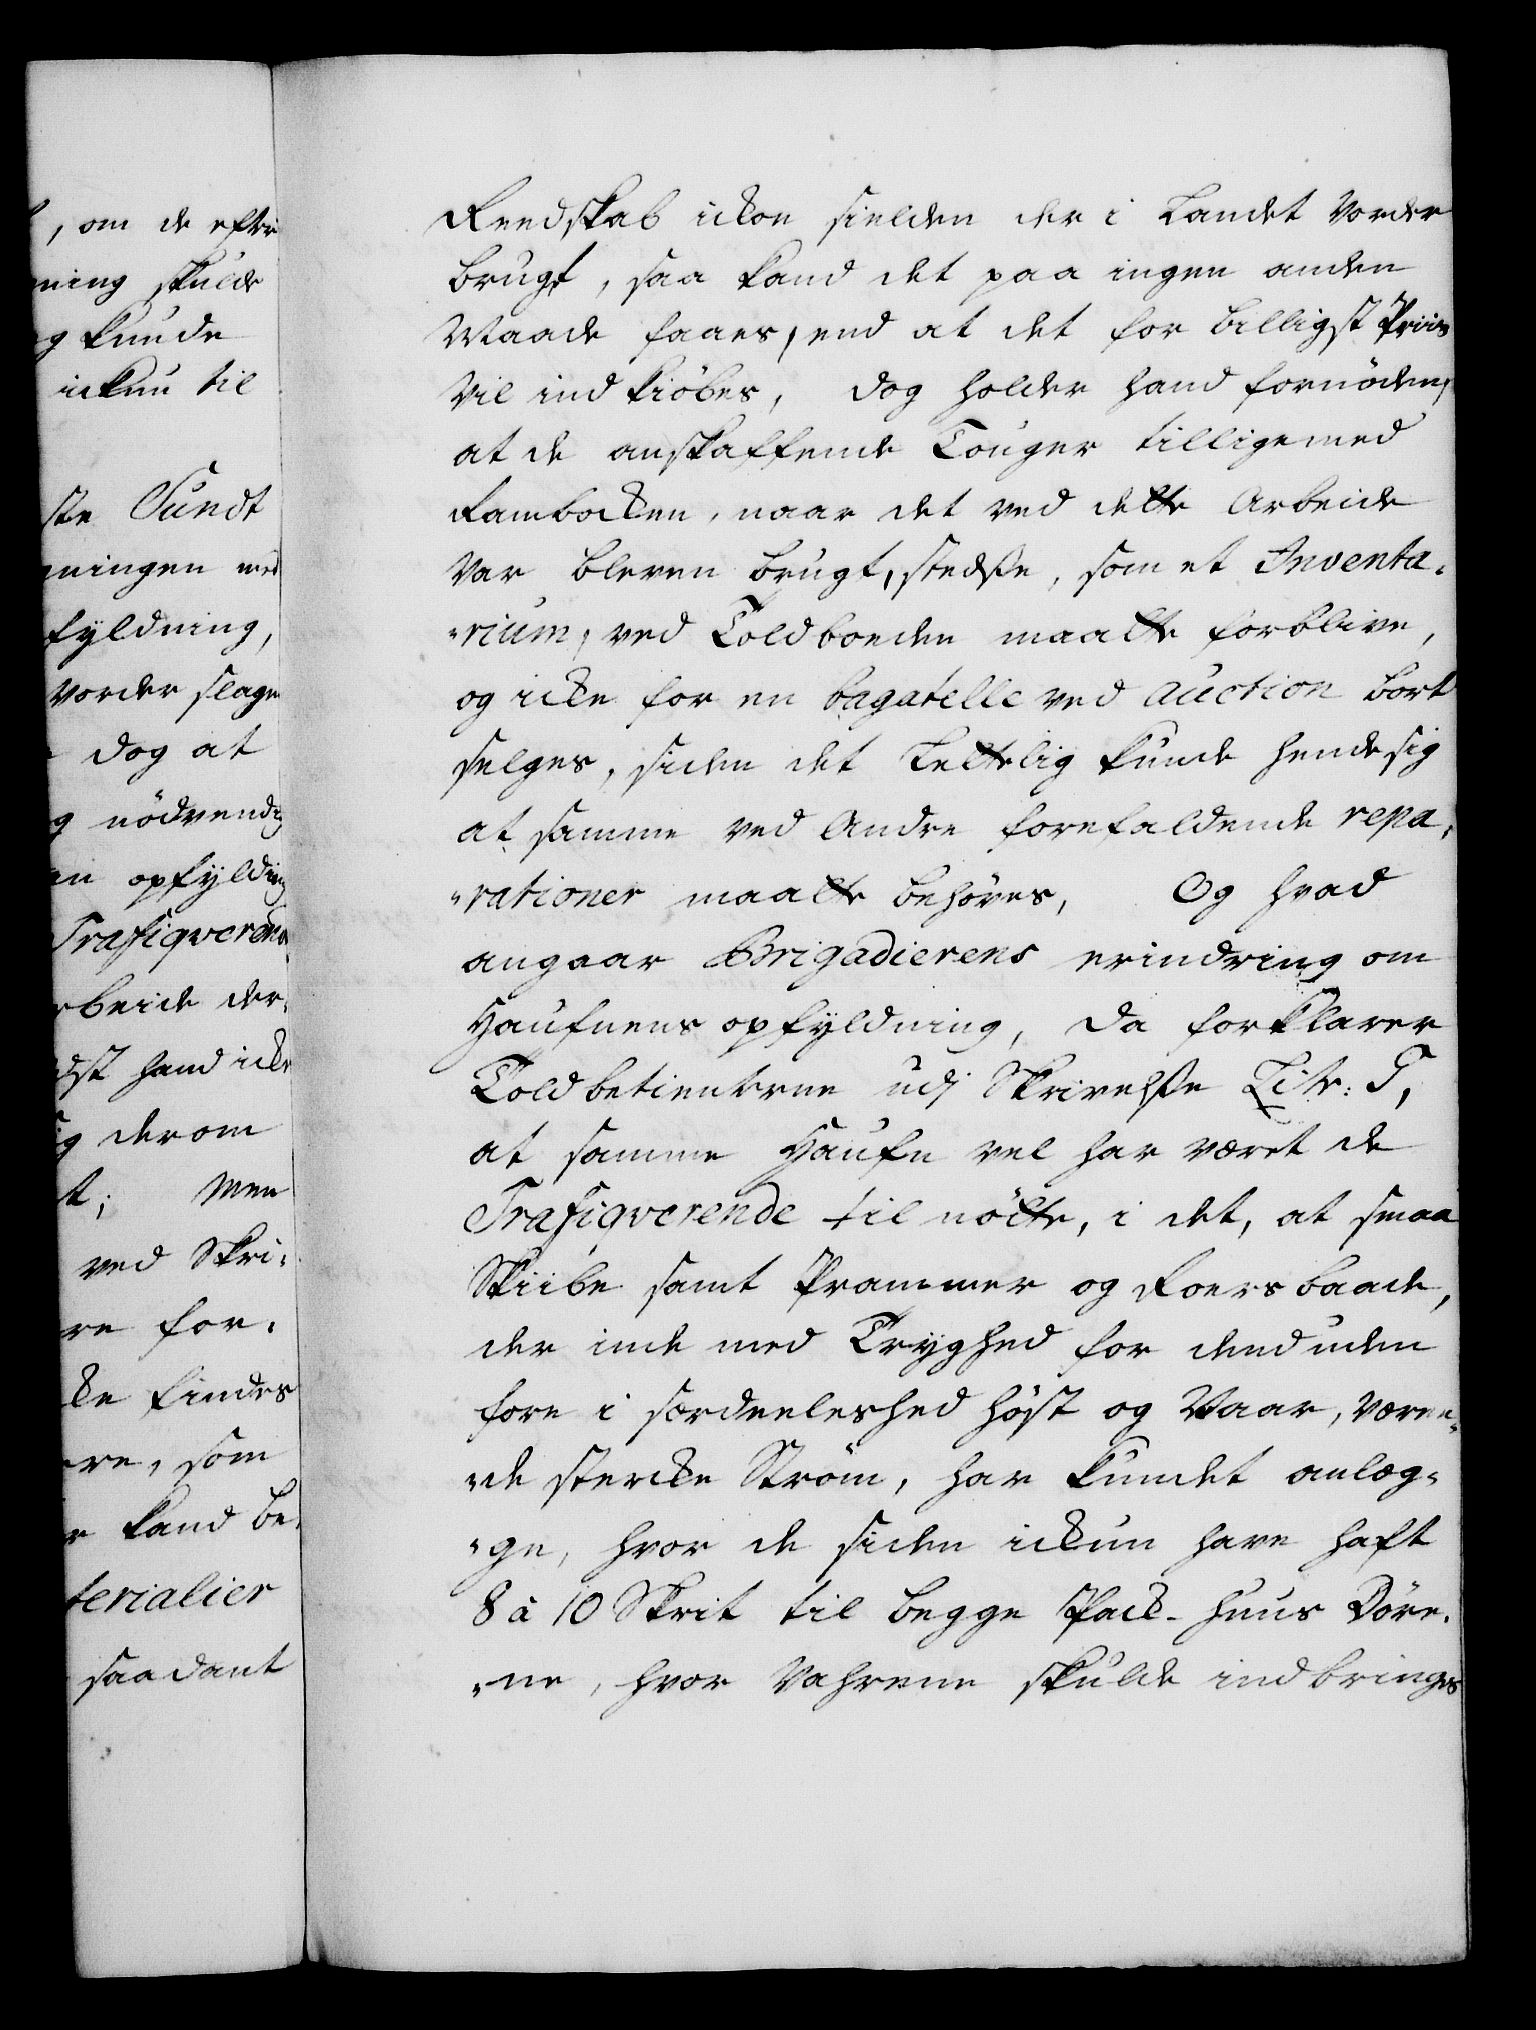 , om de efter
ning skulde
g kunde
ickun til
ste Sundt
ningen med
fyldning,
vorder slage
dog at
g nödvendig
en opfylding
Trafiqverende
rbeide der,
dst hand icke
ig derom
t; Men
ved Skri,
re for,
ke findes
re, som
r kand be,
terialier
saadant
Reedskab ickon sielden der i Landet vorder
brugt, saa kand det paa ingen anden
Maade faaes, end at det for billigst Priis
vil ind kiöbes, dog holder hand fornöden,
at de anskaffende Touger tilligemed
Rambocken, naar det ved dette Arbeide
var bleven brugt, stedße, som et Inventa,
,rium, ved Toldboeden maatte forblive,
og icke for en bagatelle ved auction bort
selges, siden det Lettelig kunde hende sig
at samme ved Andre forefaldende repa,
,rationer maatte behöves, Og hvad
angaar Brigadierens erindring om
Haufnens opfyldning, da forklarer
Toldbetienterne udj Skrivelße Litr: T,
at samme Haufn vel har været de
Trafiqverende til nötte, i det, at smaa
Skiibe samt Prammer og Roersbaade,
der inde med Tryghed for dend uden
fore i særdeeleshed höst og Vaar, være,
,de stercke Ström, har kundet anlæg,
,ge, hvor de siden ickun have haft
8 à 10 Skrit til begge Pack-huus Döre,
,ne, hvor Vahrene skulde indbringes